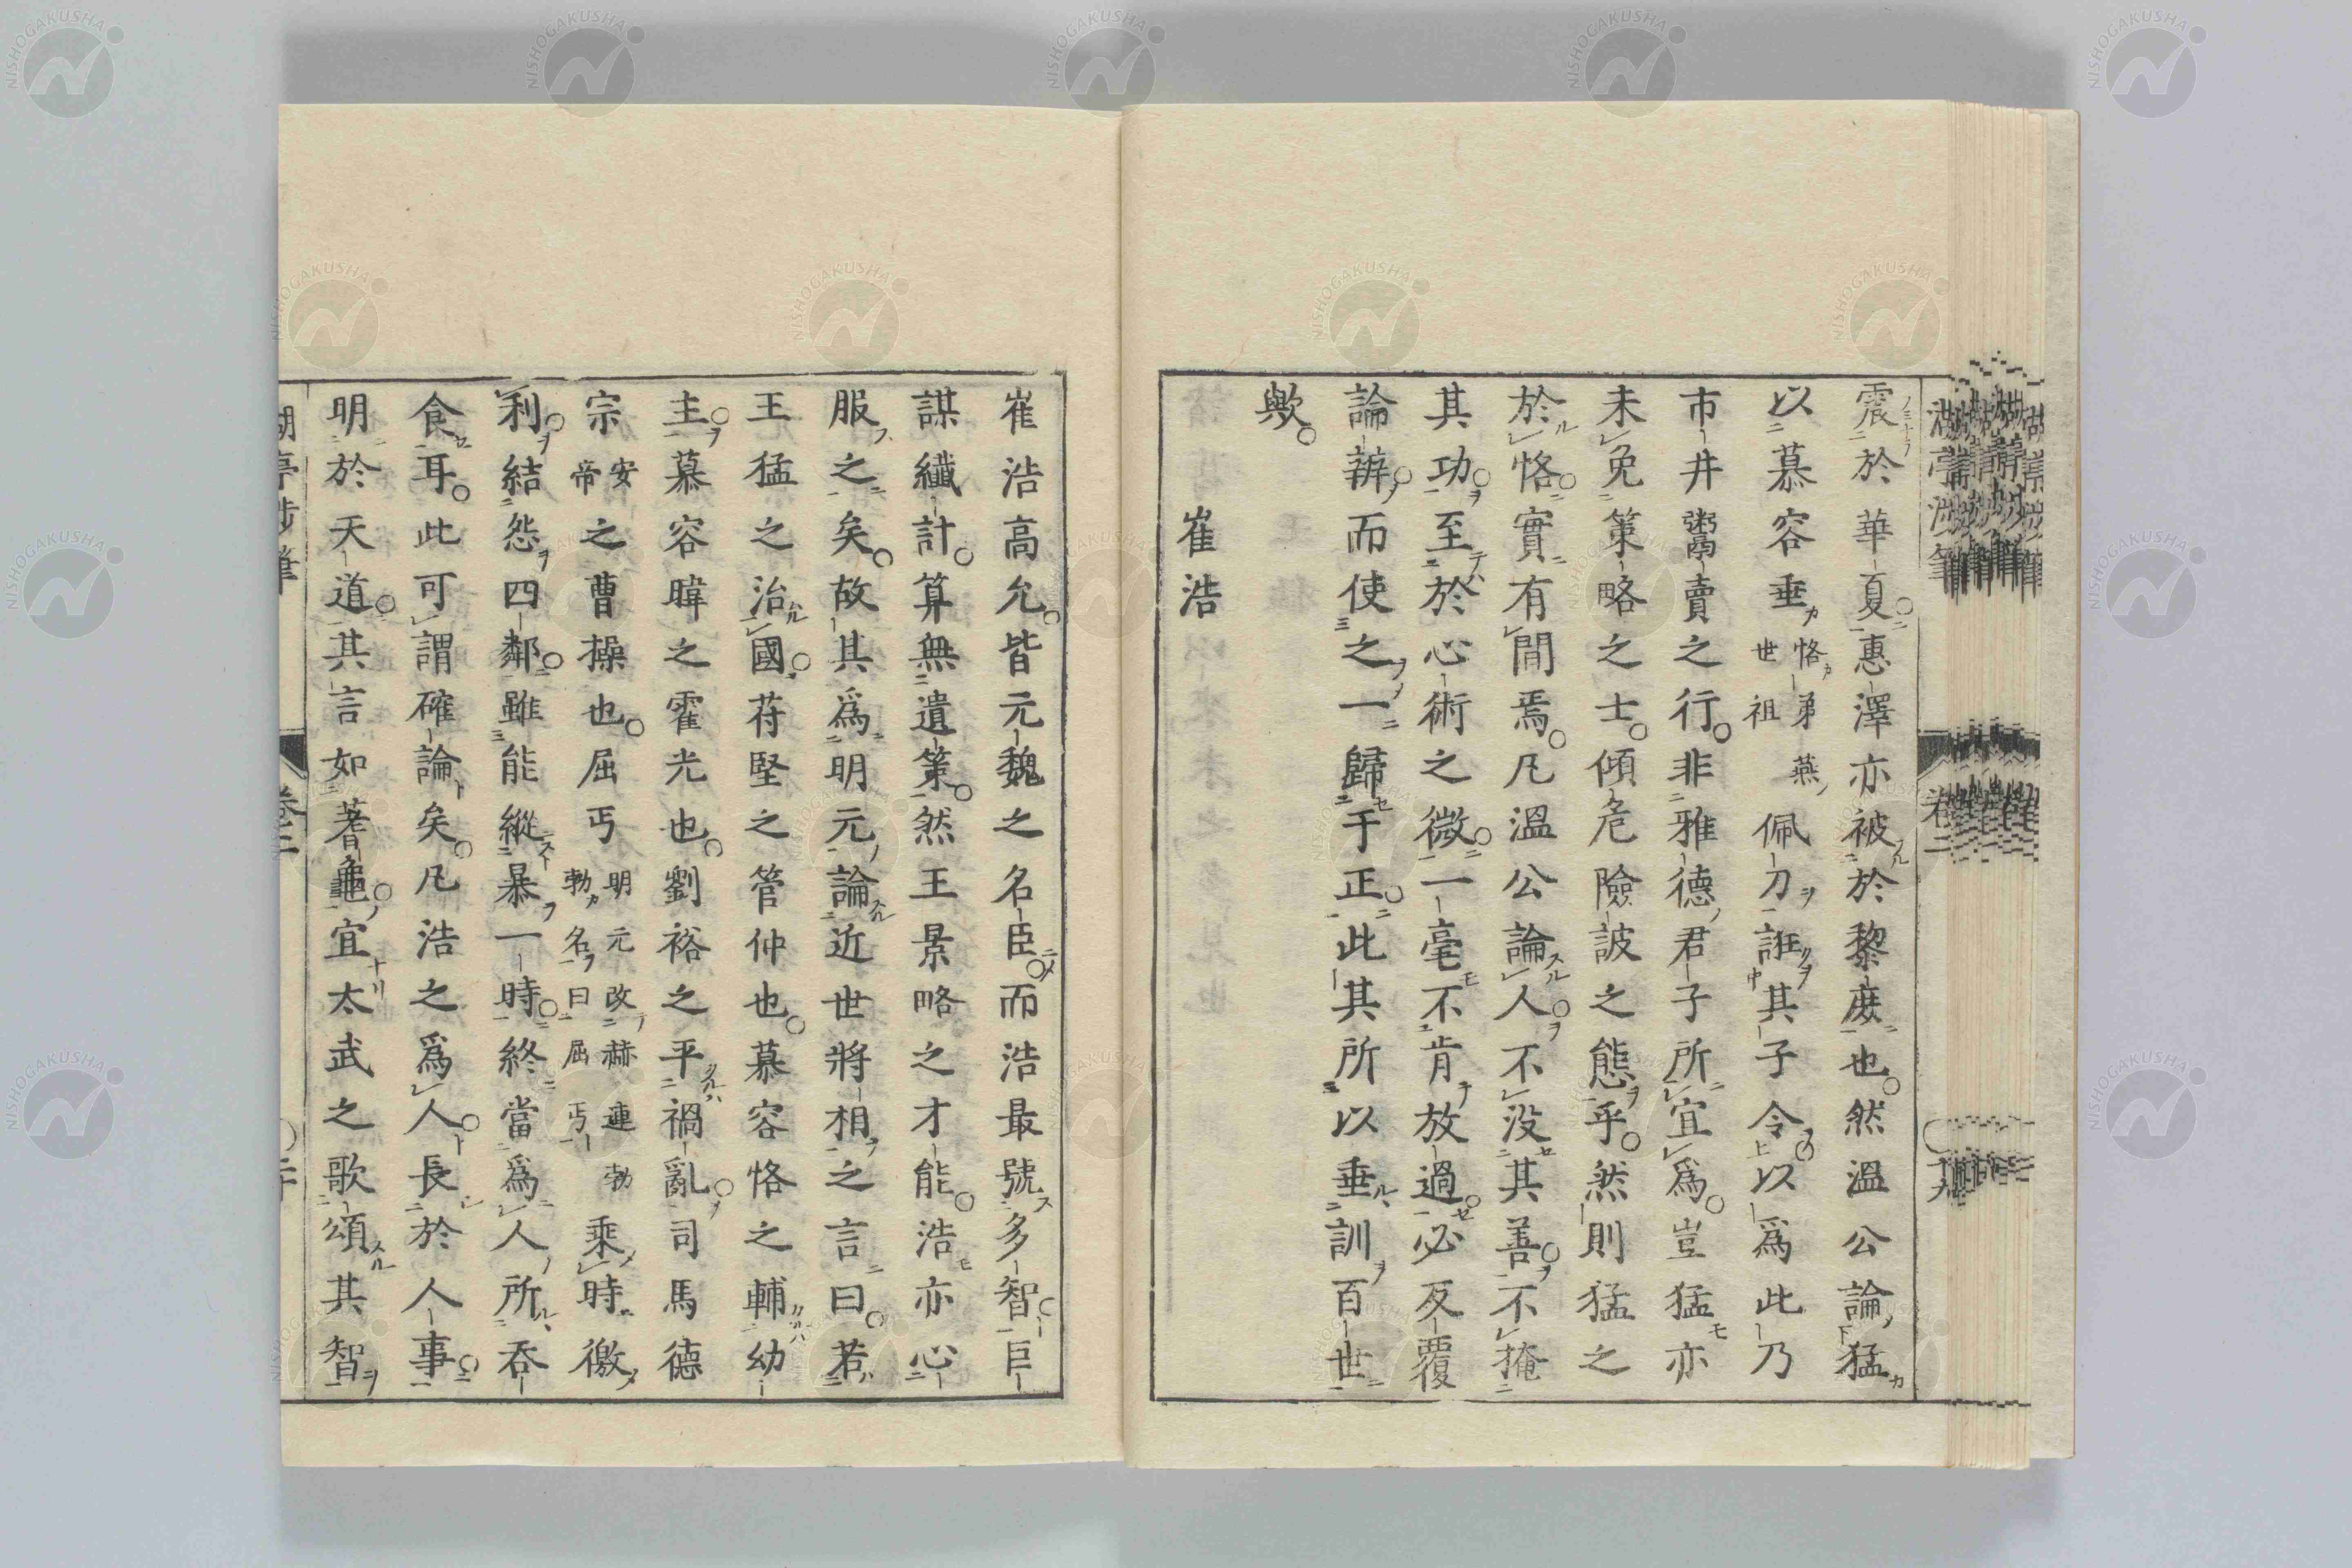 震於華夏惠澤亦被於黎庶也然溫公論猛
以慕容垂恪弟燕世祖佩刀誑其子令以爲此乃
市井鬻賣之行非雅德君子所宜爲豈猛亦
未免策略之士傾危險詖之態乎然則猛之
於恪實有閒焉凡溫公論人不没其善不掩
其功至於心術之微一毫不肯放過必反覆
論辨而使之一歸于正此其所以垂訓百世
歟
崔浩
崔浩高允皆元魏之名臣而浩最號多智巨
謀纖計算無遺策然王景略之才能浩亦心
服之矣故其爲明元論近世將相之言曰若
王猛之治國苻堅之管仲也慕容恪之輔幼
主慕容暐之霍光也劉裕之平禍亂司馬德
宗安帝之曹操也屈丐明元改赫連勃勃名曰屈丐乘時徼
利結怨四鄰雖能縱暴一時終當爲人所吞
食耳此可謂確論矣凡浩之爲人長於人事
明於天道其言如蓍龜宜太武之歌頌其智
湖亭涉筆
卷二